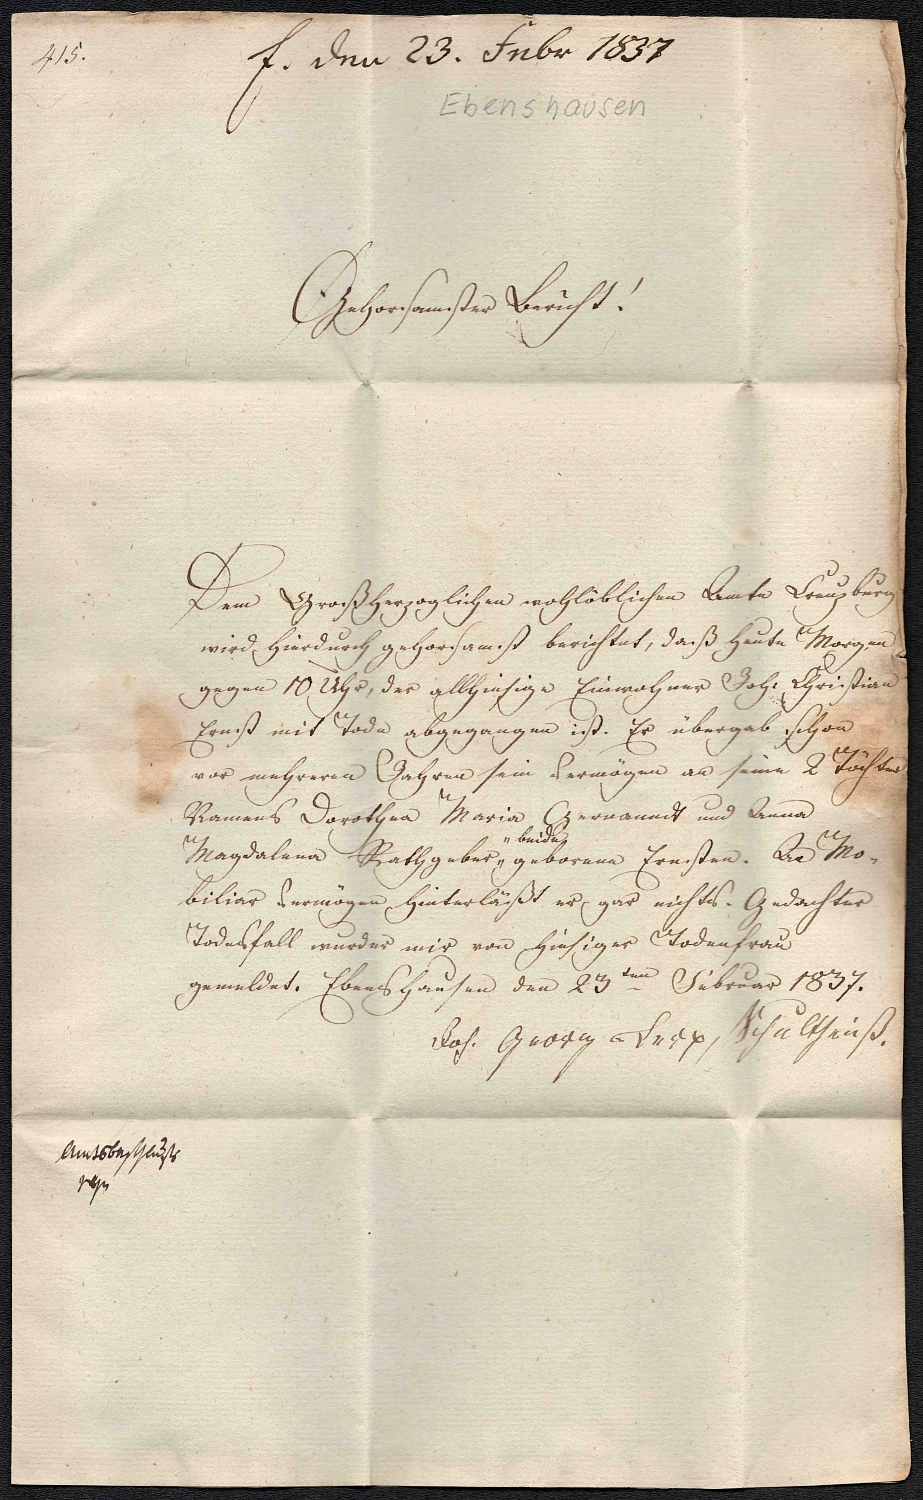 415.
f. den 23. Febr 1837
Ebenshausen
Gehorsamster Bericht!
Dem Großherzoglichen wohllöblichen Amte Creuzburg
wird hierdurch gehorsamst berichtet, daß heute Morgen
gegen 10 Uhr, der allhiesige Einwohner Joh. Christian
Ernst mit Tode abgegangen ist. Er übergab schon
vor mehreren Jahren sein Vermögen an seine 2 Töchter
Namens Dorothea Maria und Anna
„beide
Magdalena Rathgeber „ geborene Ernsten. An Mo-
biliar Vermögen hinterläßt er gar nichts. Gedachter
Todesfall wurder mir von hiesiger Todenfrau
gemeldet. Ebenshausen den 23ten Februar 1837.
Joh. Georg Schultheiß.